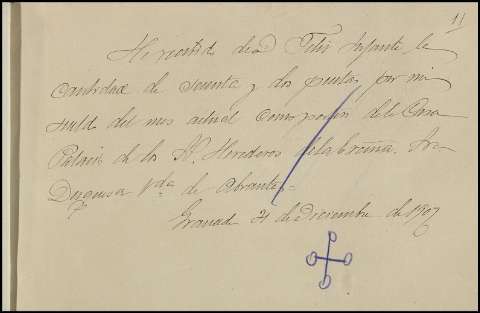 11
He recibido de D. Felix Infante la
cantidad de sesenta y dos pesetas por mi
sueldo del mes actual como portero de la Casa
Palacio de los H. Herederos de la Excma. Sra
Duquesa Vda de Abrantes=
Granada 31 de Diciembre de 1907